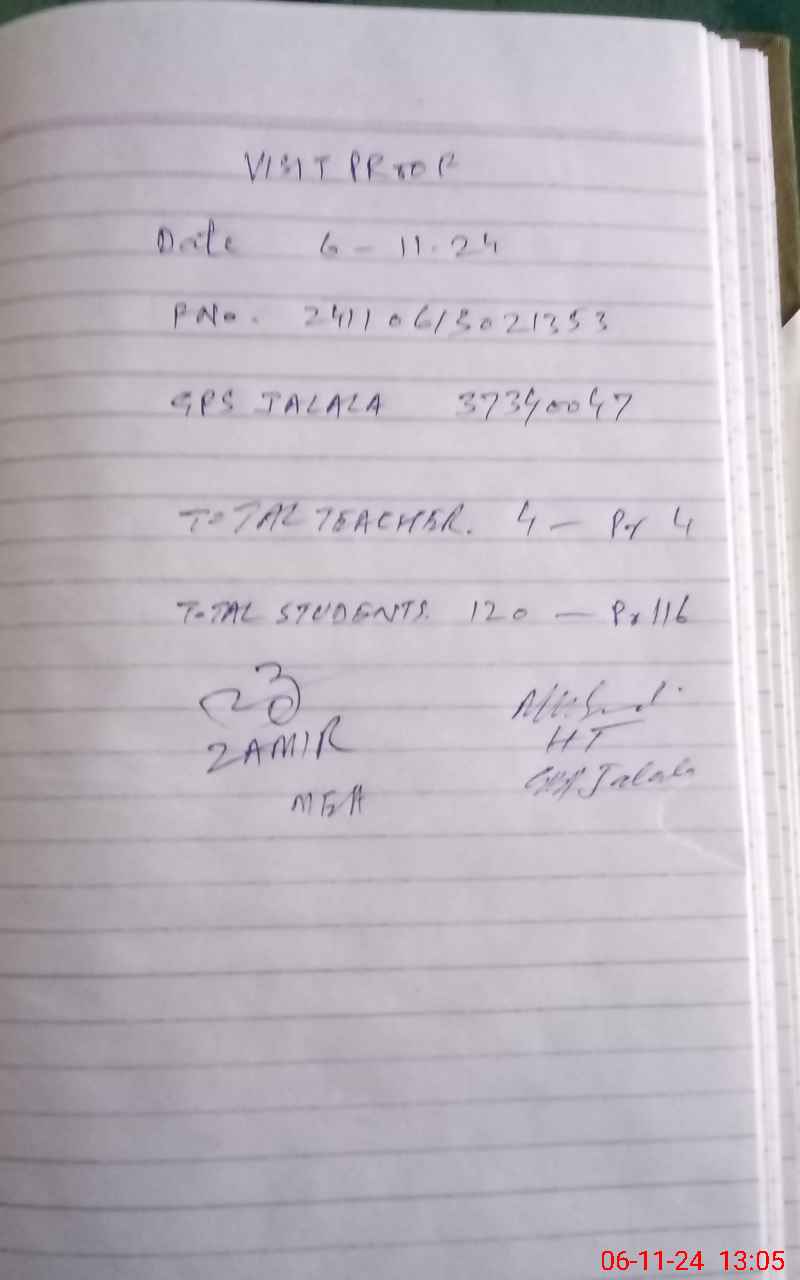 VISIT PROOF
Date 6-11.24
P No. 2411061 3021353
GPS JALALA 37340047
TOTAL TEACHER. 4 — Pr 4
TOTAL STUDENTS. 120 — Pr 116
ZAMIR
HT
MEA
Jalala
06-11-24 13:05